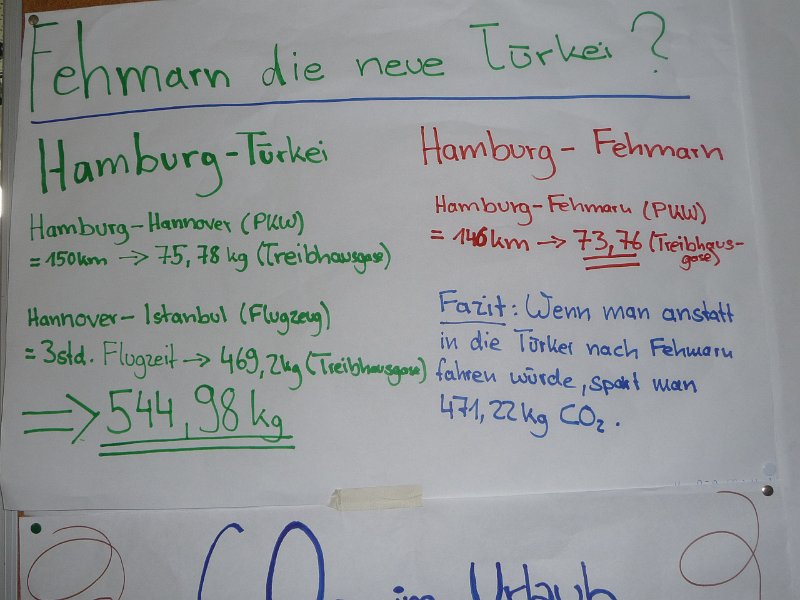 Fehmarn die neue Türkei?
Hamburg-Türkei
Hamburg-Hannover (PKW)
= 150km → 75,78 kg (Treibhausgase)
Hannover-Istanbul (Flugzeug)
= 3std. Flugzeit → 469,2kg (Treibhausgase)
⇒ 544,98 kg
Hamburg - Fehmarn
Hamburg-Fehmarn (PKW)
= 146km → 73,76 (Treibhaus-
gase)
Fazit: Wenn man anstatt
in die Türkei nach Fehmarn
fahren würde, spart man
471,22kg CO₂.
CO₂ im Urlaub